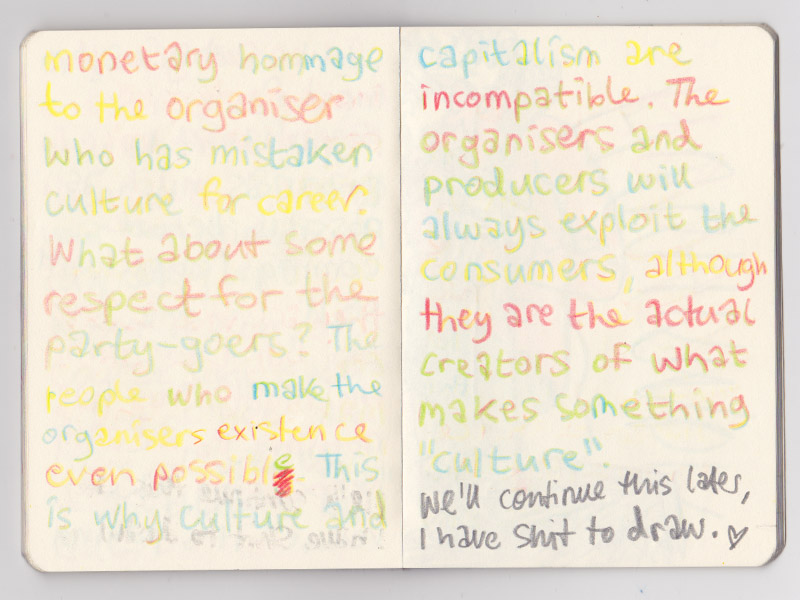 monetary hommage
to the organiser
who has mistaken
culture for career.
What about some
respect for the
party-goers? The
people who make the
organisers existence
even possible. This
is why culture and
capitalism are
incompatible. The
organisers and
producers will
always exploit the
consumers, although
they are the actual
creators of what
makes something
"culture".
We'll continue this later,
I have shit to draw. ♡